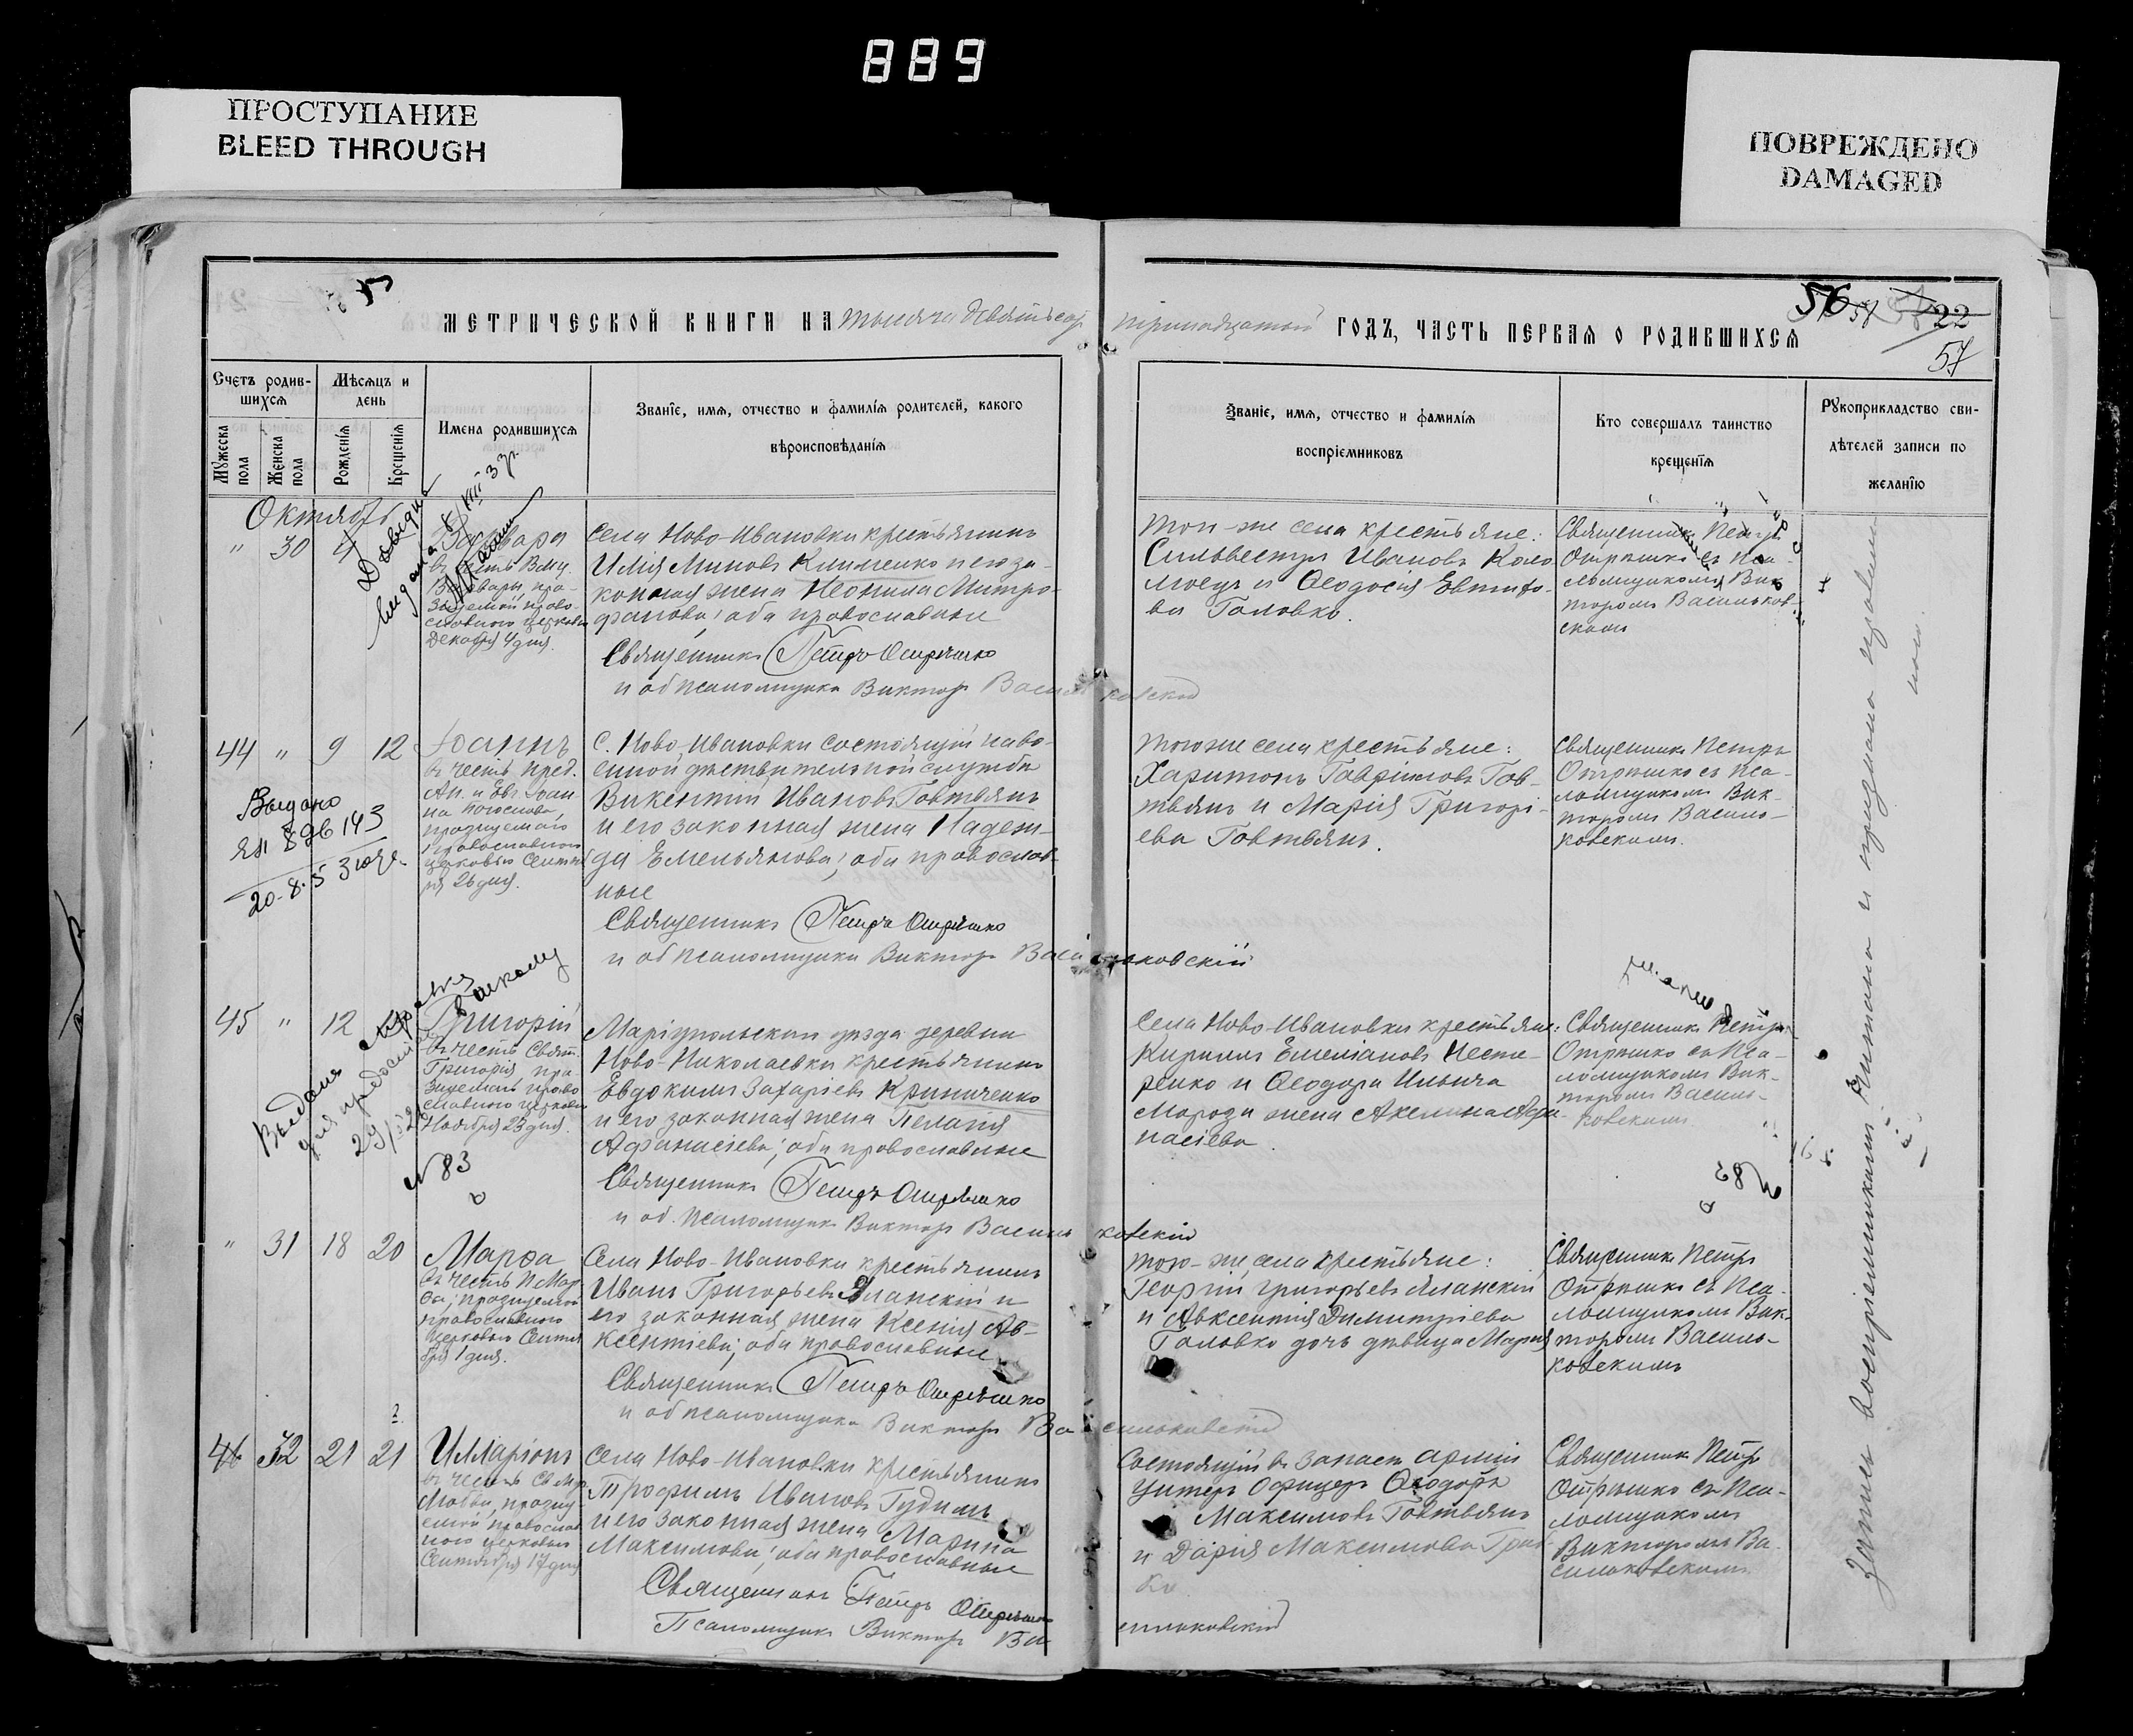 889
ПРОСТУПАНИЕ
BLEED THROUGH
ПОВРЕЖДЕНО
DAMAGED
МЕТРИЧЕСКОЙ КНИГИ НА тысяча девятьсот тринадцатый ГОДЪ, ЧАСТЬ ПЕРВАЯ О РОДИВШИХСЯ
56 58 22
57
Счетъ родив-
шихся
Мужеска пола
Женска пола
Мѣсяцъ и
день
Рожденія
Крещенія
Имена родившихся
Званіе, имя, отчество и фамилія родителей, какого
вѣроисповѣданія
Званіе, имя, отчество и фамилія
воспріемниковъ
Кто совершалъ таинство
крещенія
Рукоприкладство сви-
дѣтелей записи по
желанію
Октябрь
" 30 4
Варвара
въ честь Вмц.
Варвары, пра-
здуемой право-
славною церковью
Декабря 4 дня.
Села Ново-Ивановки крестьянинъ
Илія Миновъ Клименко и его за-
конная жена Неонила Митро-
фанова; оба православные
Священникъ Петръ Отрѣшко
и об псаломщика Викторъ Васильковскій
Того-же села крестьяне:
Сильвестръ Ивановъ Коло
моецъ и Ѳеодосія Евтифѣ-
ва Головко.
Священникъ Петръ
Отрѣшко съ пса-
ломщикомъ Вик
торомъ Васильков-
скимъ
44 " 9 12
Іоаннъ
въ честь пред.
Ап. и Ев. Іоан
на Богослова,
празднуемаго
православною
церковью Сентяб
ря 26 дня.
С. Ново-Ивановки состоящій на во-
енной дѣйствительной службѣ
Викентій Ивановъ Говтвянъ
и его законная жена Надеж-
да Емельянова; оба православ-
ные
Священникъ Петръ Отрѣшко
и об псаломщика Викторъ Васильковскій
Того же села крестьяне:
Харитонъ Гавріиловъ Гов-
твянъ и Марія Григорі-
ева Говтвянъ.
Священникъ Петръ
Отрѣшко съ пса-
ломщикомъ Вик-
торомъ Василь-
ковскимъ.
Выдано
ЯП 896143
45 " 12
Григорій
въ честь Свят.
Григорія, пра-
зднуемаго право
славною церковью
Ноября 23 дня.
Маріупольскаго уѣзда деревни
Ново-Николаевки крестьянинъ
Евдокимъ Захаріевъ Криниченко
и его законная жена Пелагія
Афанасіева; оба православные
Священникъ Петръ Отрѣшко
и об. псаломщика Викторъ Васильковскій
Села Ново-Ивановки крестьяне:
Кириллъ Емеліановъ Несте-
ренко и Ѳеодора Ильича
Мороза жена Акелина Афа-
насіева.
Священникъ Петръ
Отрѣшко съ пса-
ломщикомъ Вик-
торомъ Василь-
ковскимъ
N 83
" 31 18 20
Марѳа
въ честь П. Мар-
ѳы, празднуемой
православною
церковью Сентя
бря 1 дня.
Села Ново-Ивановки крестьянинъ
Иванъ Григорьевъ Яланскій и
его законная жена Ксенія Ав-
ксентіева; оба православные
Священникъ Петръ Отрѣшко
и об псаломщика Викторъ Васильковскій
Того-же села крестьяне:
Георгій Григорьевъ Яланскій
и Авксентія Димитріева
Головко дочь дѣвица Марія
Священникъ Петръ
Отрѣшко съ пса-
ломщикомъ Вик-
торомъ Василь-
ковскимъ
46 32 21 21
Илларіонъ
Сентября 17 дня
Села Ново-Ивановки крестьянинъ
Трофимъ Ивановъ Гудимъ
и его законная жена Марина
Максимова; оба православные
Священникъ Петръ Отрѣшко
Псаломщикъ Викторъ Васильковскій
Состоящій въ запасѣ арміи
Унтеръ Офицеръ Ѳеодоръ
Максимовъ Говтвянъ
и Дарія Максимова
Священникъ Петръ
Отрѣшко съ пса-
ломщикомъ
Викторомъ Ва-
сильковскимъ